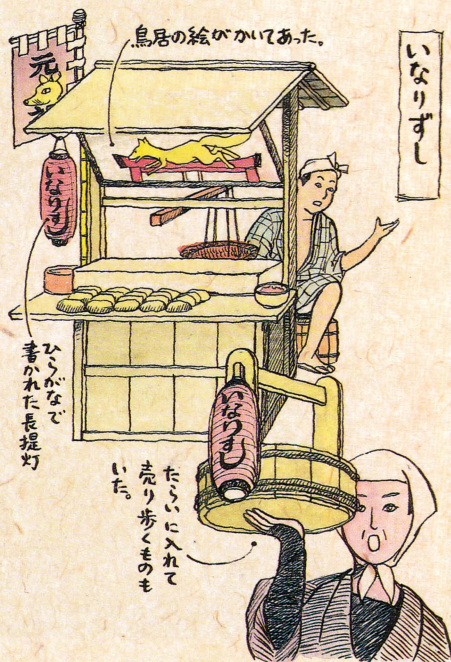 いなりずし
鳥居の絵がかいてあった。
元
いなりすし
ひらがなで
書かれた長提灯
いなりすし
たらいに入れて
売り歩くものも
いた。